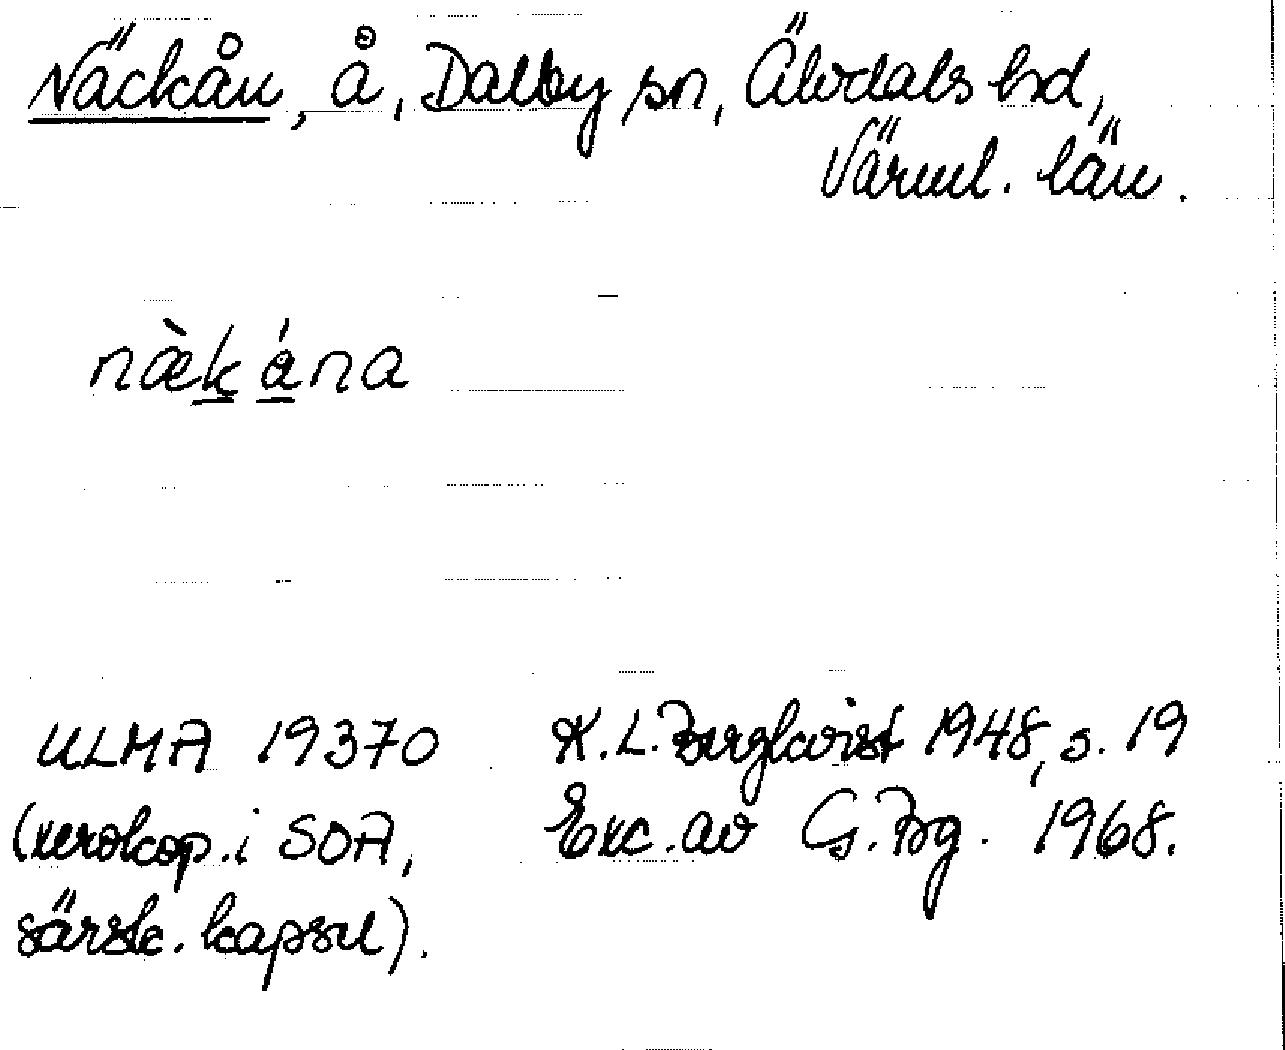 Näckån, å, Dalby sn, Älvdals hd,
Värml. län.
næ̀kǻna
ULMA 19370
(xerokop. i SOA,
särsk. kapsel).
K. L. Bergkvist 1948, s. 19
Exc. av G. Bg. 1968.